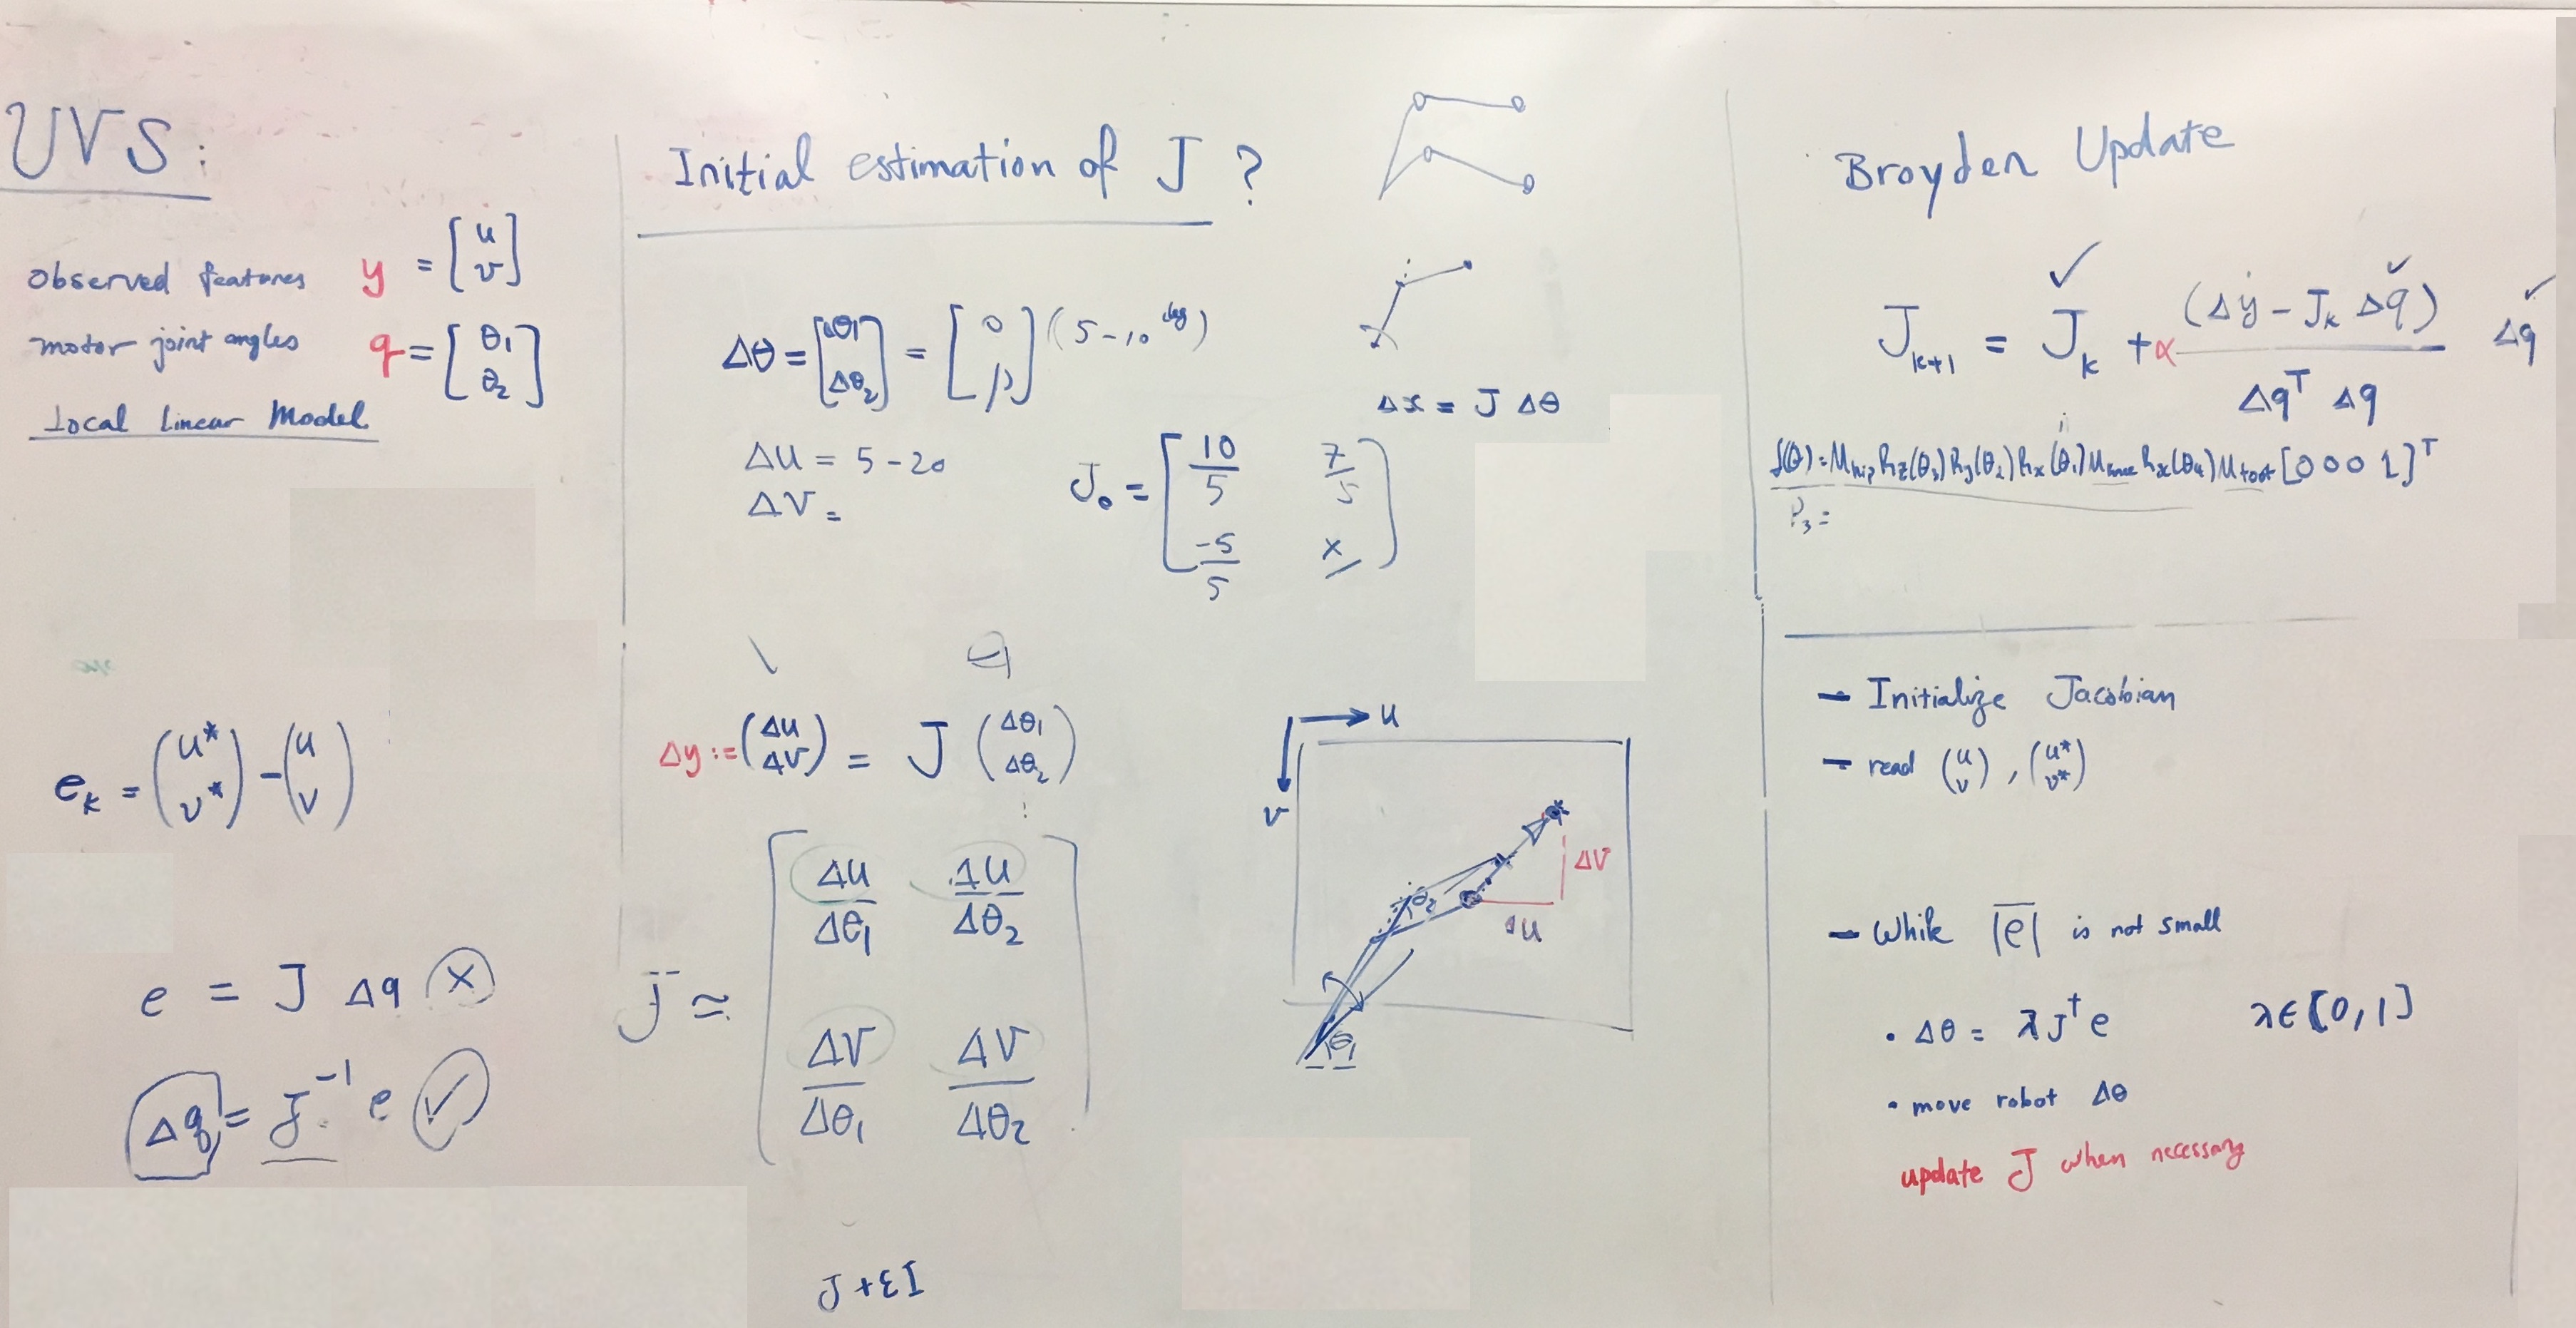 UVS:
Observed features y = [u v]
motor joint angles q = [θ₁ θ₂]
Local Linear Model
e_k = (u* v*) - (u v)
e = J Δq ×
Δq = J⁻¹ e ✓
Initial estimation of J ?
Δθ = [Δθ₁ Δθ₂] = [0 ] (5-10 deg)
Δx = J Δθ
Δu = 5-20
Δv =
J₀ = [10/5 7/5 -5/5 x]
Δy := (Δu Δv) = J (Δθ₁ Δθ₂)
J ≈ [Δu/Δθ₁ Δu/Δθ₂ Δv/Δθ₁ Δv/Δθ₂]
J+εI
u
v
ΔV
Δu
θ₂
θ₁
Broyden Update
J_{k+1} = J_k + α (Δy - J_k Δq) / (Δqᵀ Δq) Δq
f(θ) = M_hip R_z(θ₃) R_y(θ₂) R_x(θ₁) M_knee R_x(θ₄) M_foot [0 0 0 1]ᵀ
P₃ =
- Initialize Jacobian
- read (u v), (u* v*)
- While |e| is not small
• Δθ = λ J† e λ∈[0,1]
• move robot Δθ
update J when necessary